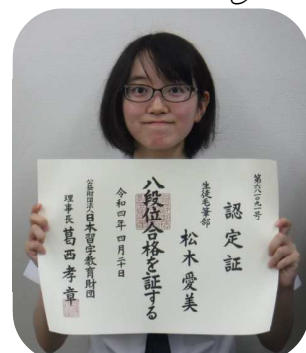 認定証
生徒毛筆部
松木愛美
八段位合格を証する
令和四年四月二十日
公益財団法人日本習字教育財団
理事長 葛西孝章